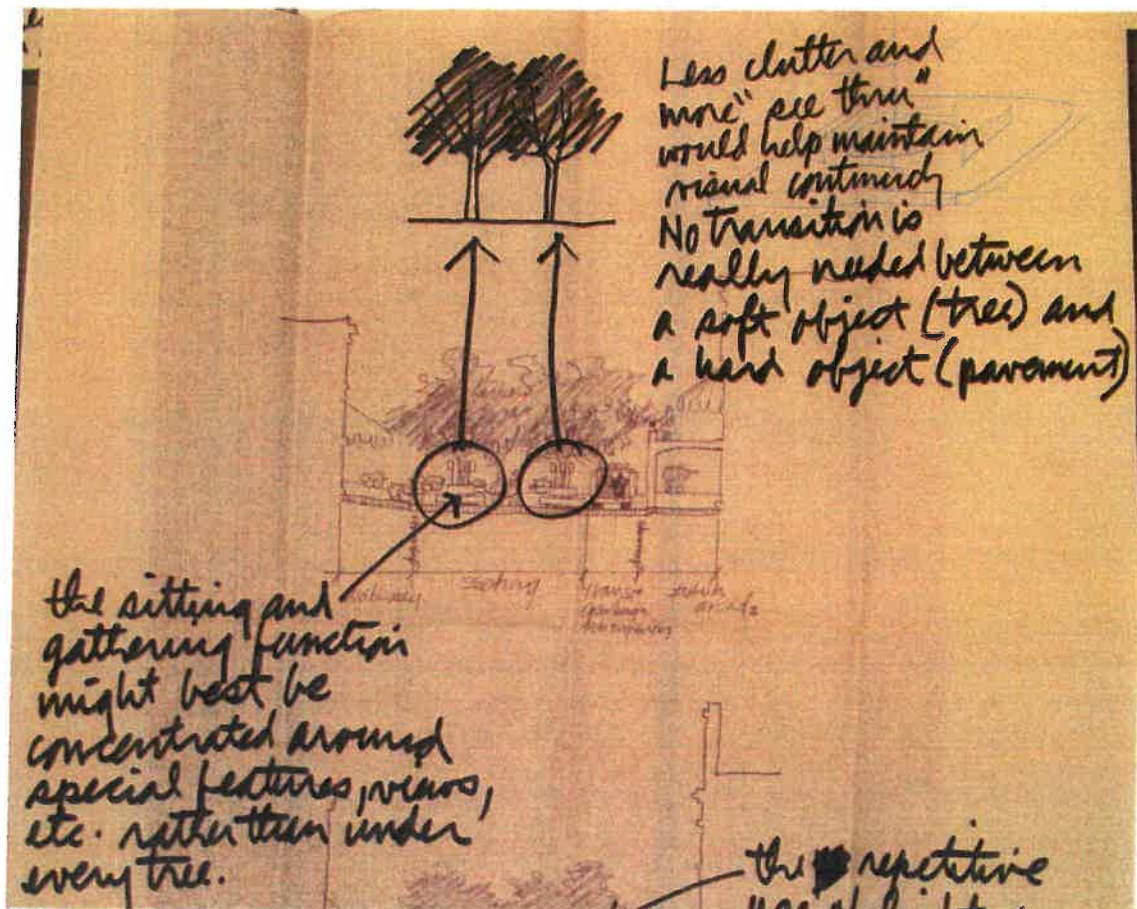 Less clutter and
more "see thru"
would help maintain
visual continuity
No transition is
really needed between
a soft object (tree) and
a hard object (pavement)
seating
the sitting and
gathering function
might best be
concentrated around
special features, views,
etc. rather than under
every tree.
the repetitive